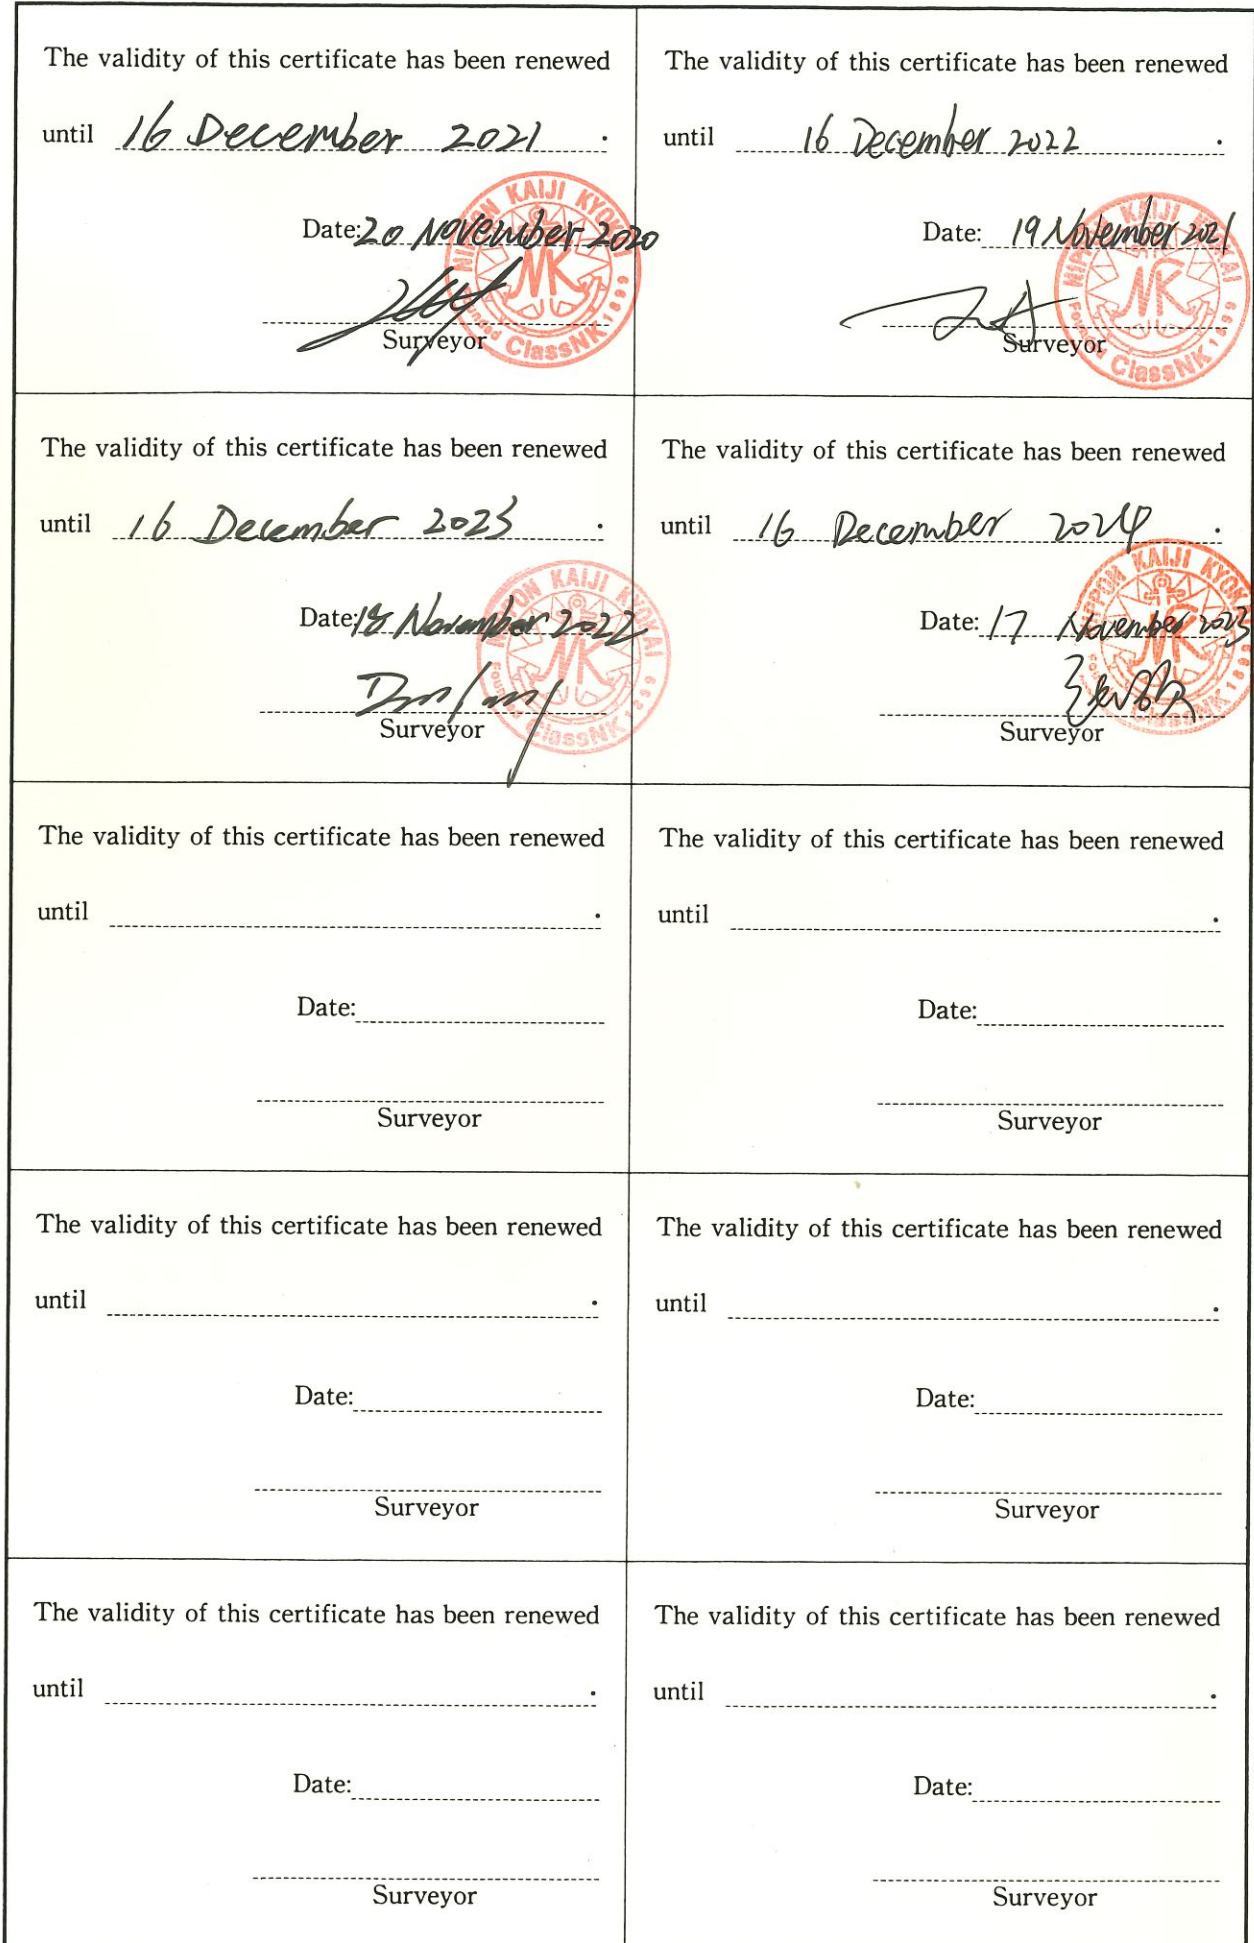 The validity of this certificate has been renewed
until 16 December 2021 .
Date: 20 November 2020
Surveyor
NIPPON KAIJI KYOKAI
Founded ClassNK 1899
NK
The validity of this certificate has been renewed
until 16 December 2022 .
Date: 19 November 2021
Surveyor
NIPPON KAIJI KYOKAI
Founded ClassNK 1899
NK
The validity of this certificate has been renewed
until 16 December 2023 .
Date: 18 November 2022
Surveyor
NIPPON KAIJI KYOKAI
Founded ClassNK 1899
NK
The validity of this certificate has been renewed
until 16 December 2024 .
Date: 17 November 2023
Surveyor
NIPPON KAIJI KYOKAI
Founded ClassNK 1899
NK
The validity of this certificate has been renewed
until .
Date:
Surveyor
The validity of this certificate has been renewed
until .
Date:
Surveyor
The validity of this certificate has been renewed
until .
Date:
Surveyor
The validity of this certificate has been renewed
until .
Date:
Surveyor
The validity of this certificate has been renewed
until .
Date:
Surveyor
The validity of this certificate has been renewed
until .
Date:
Surveyor